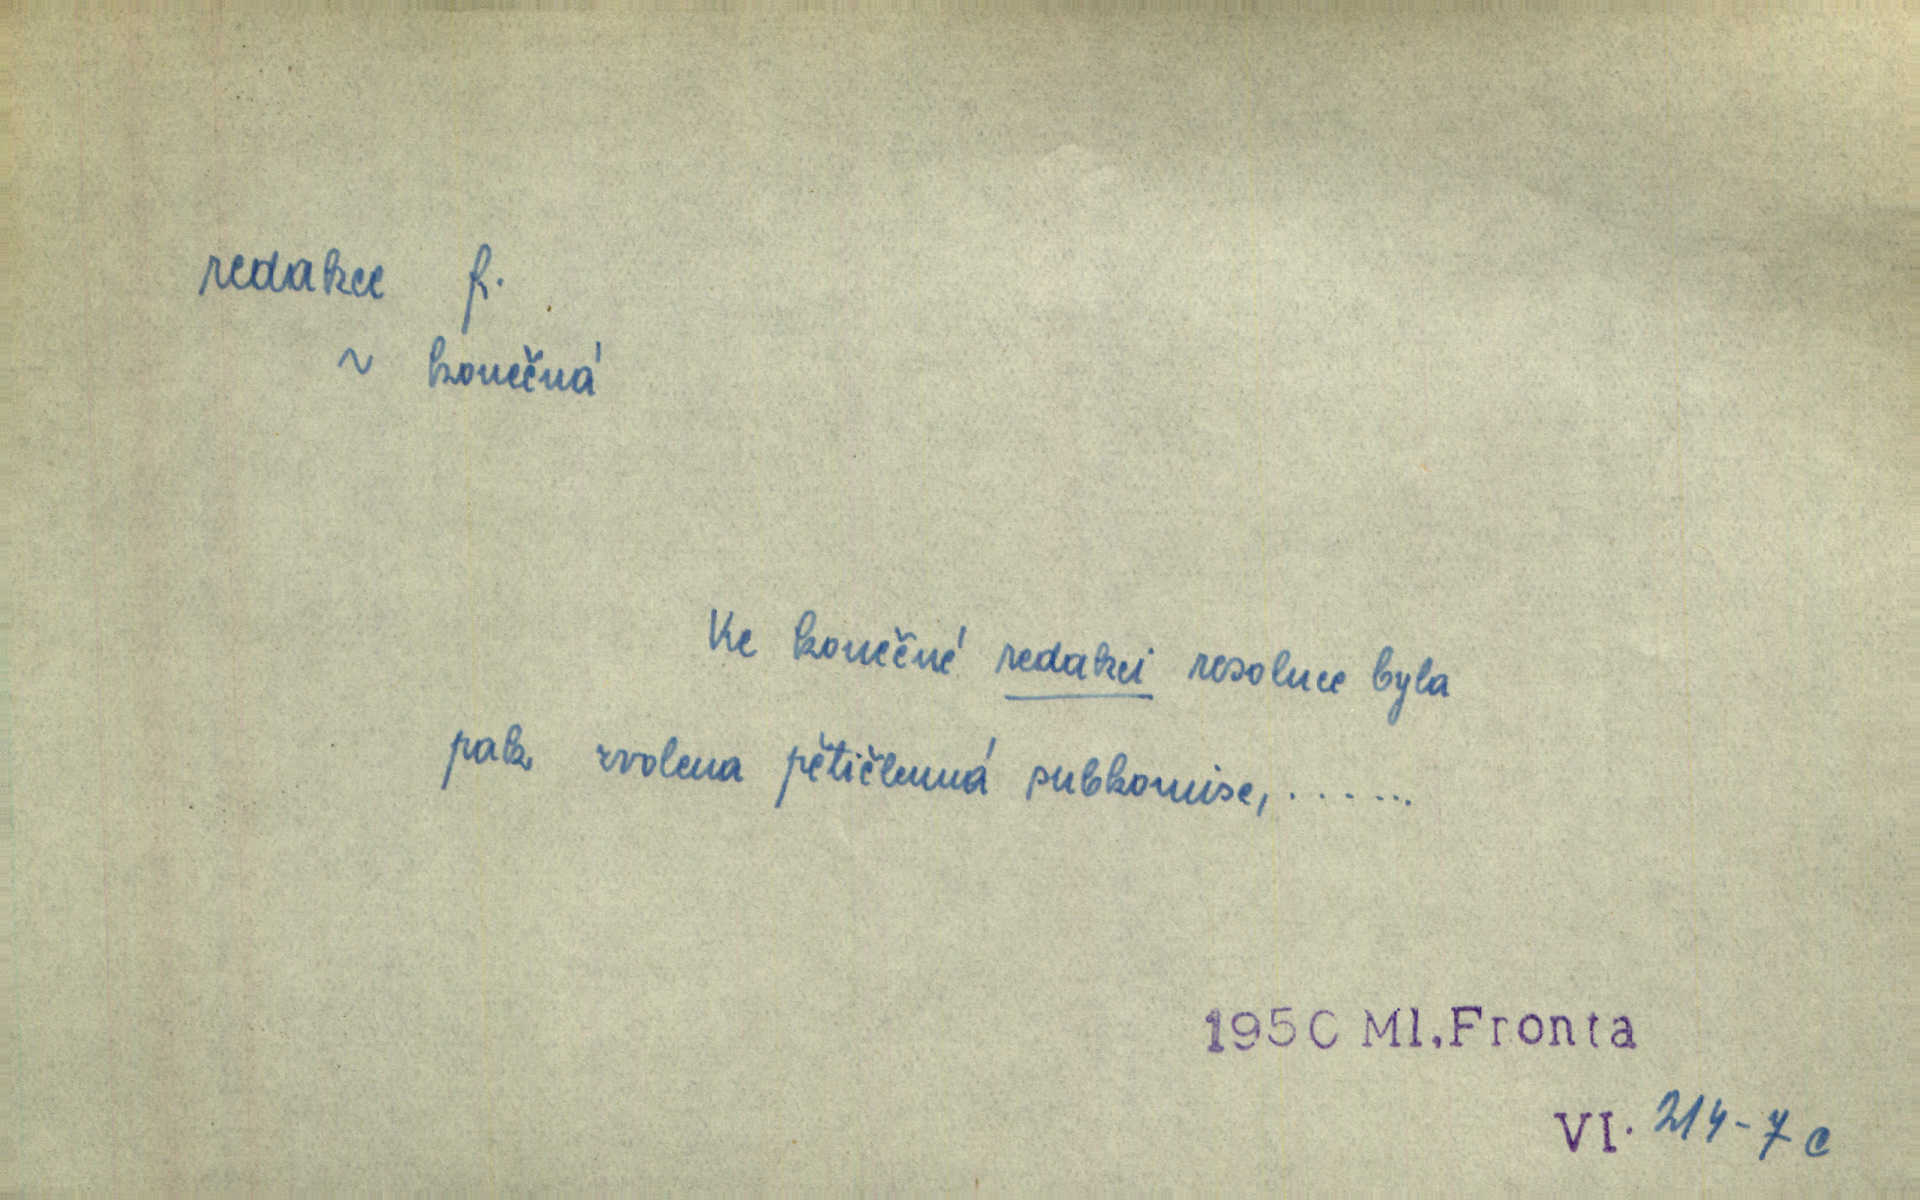 redakce f.
~ konečná
Ke konečné redakci resoluce byla
pak zvolena pětičlenná subkomise, .......
1950 Ml.Fronta
VI. 214-7 c